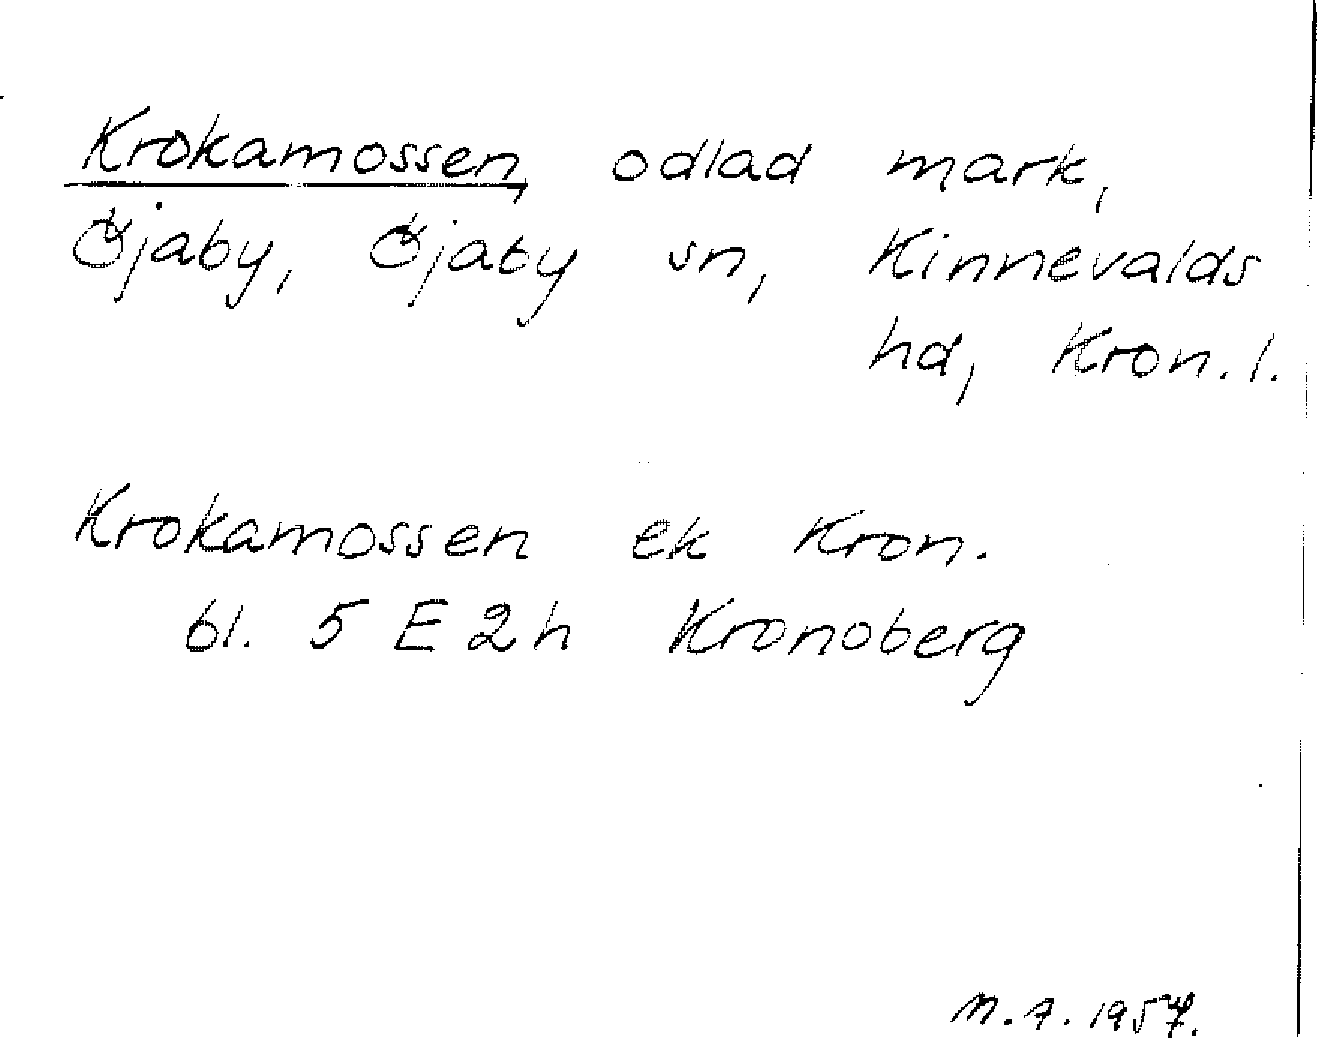 Krokamossen, odlad mark,
Öjaby, Öjaby sn, Kinnevalds
hd, Kron. l.
Krokamossen ek Kron.
bl. 5 E 2h Kronoberg
M.A. 1957.